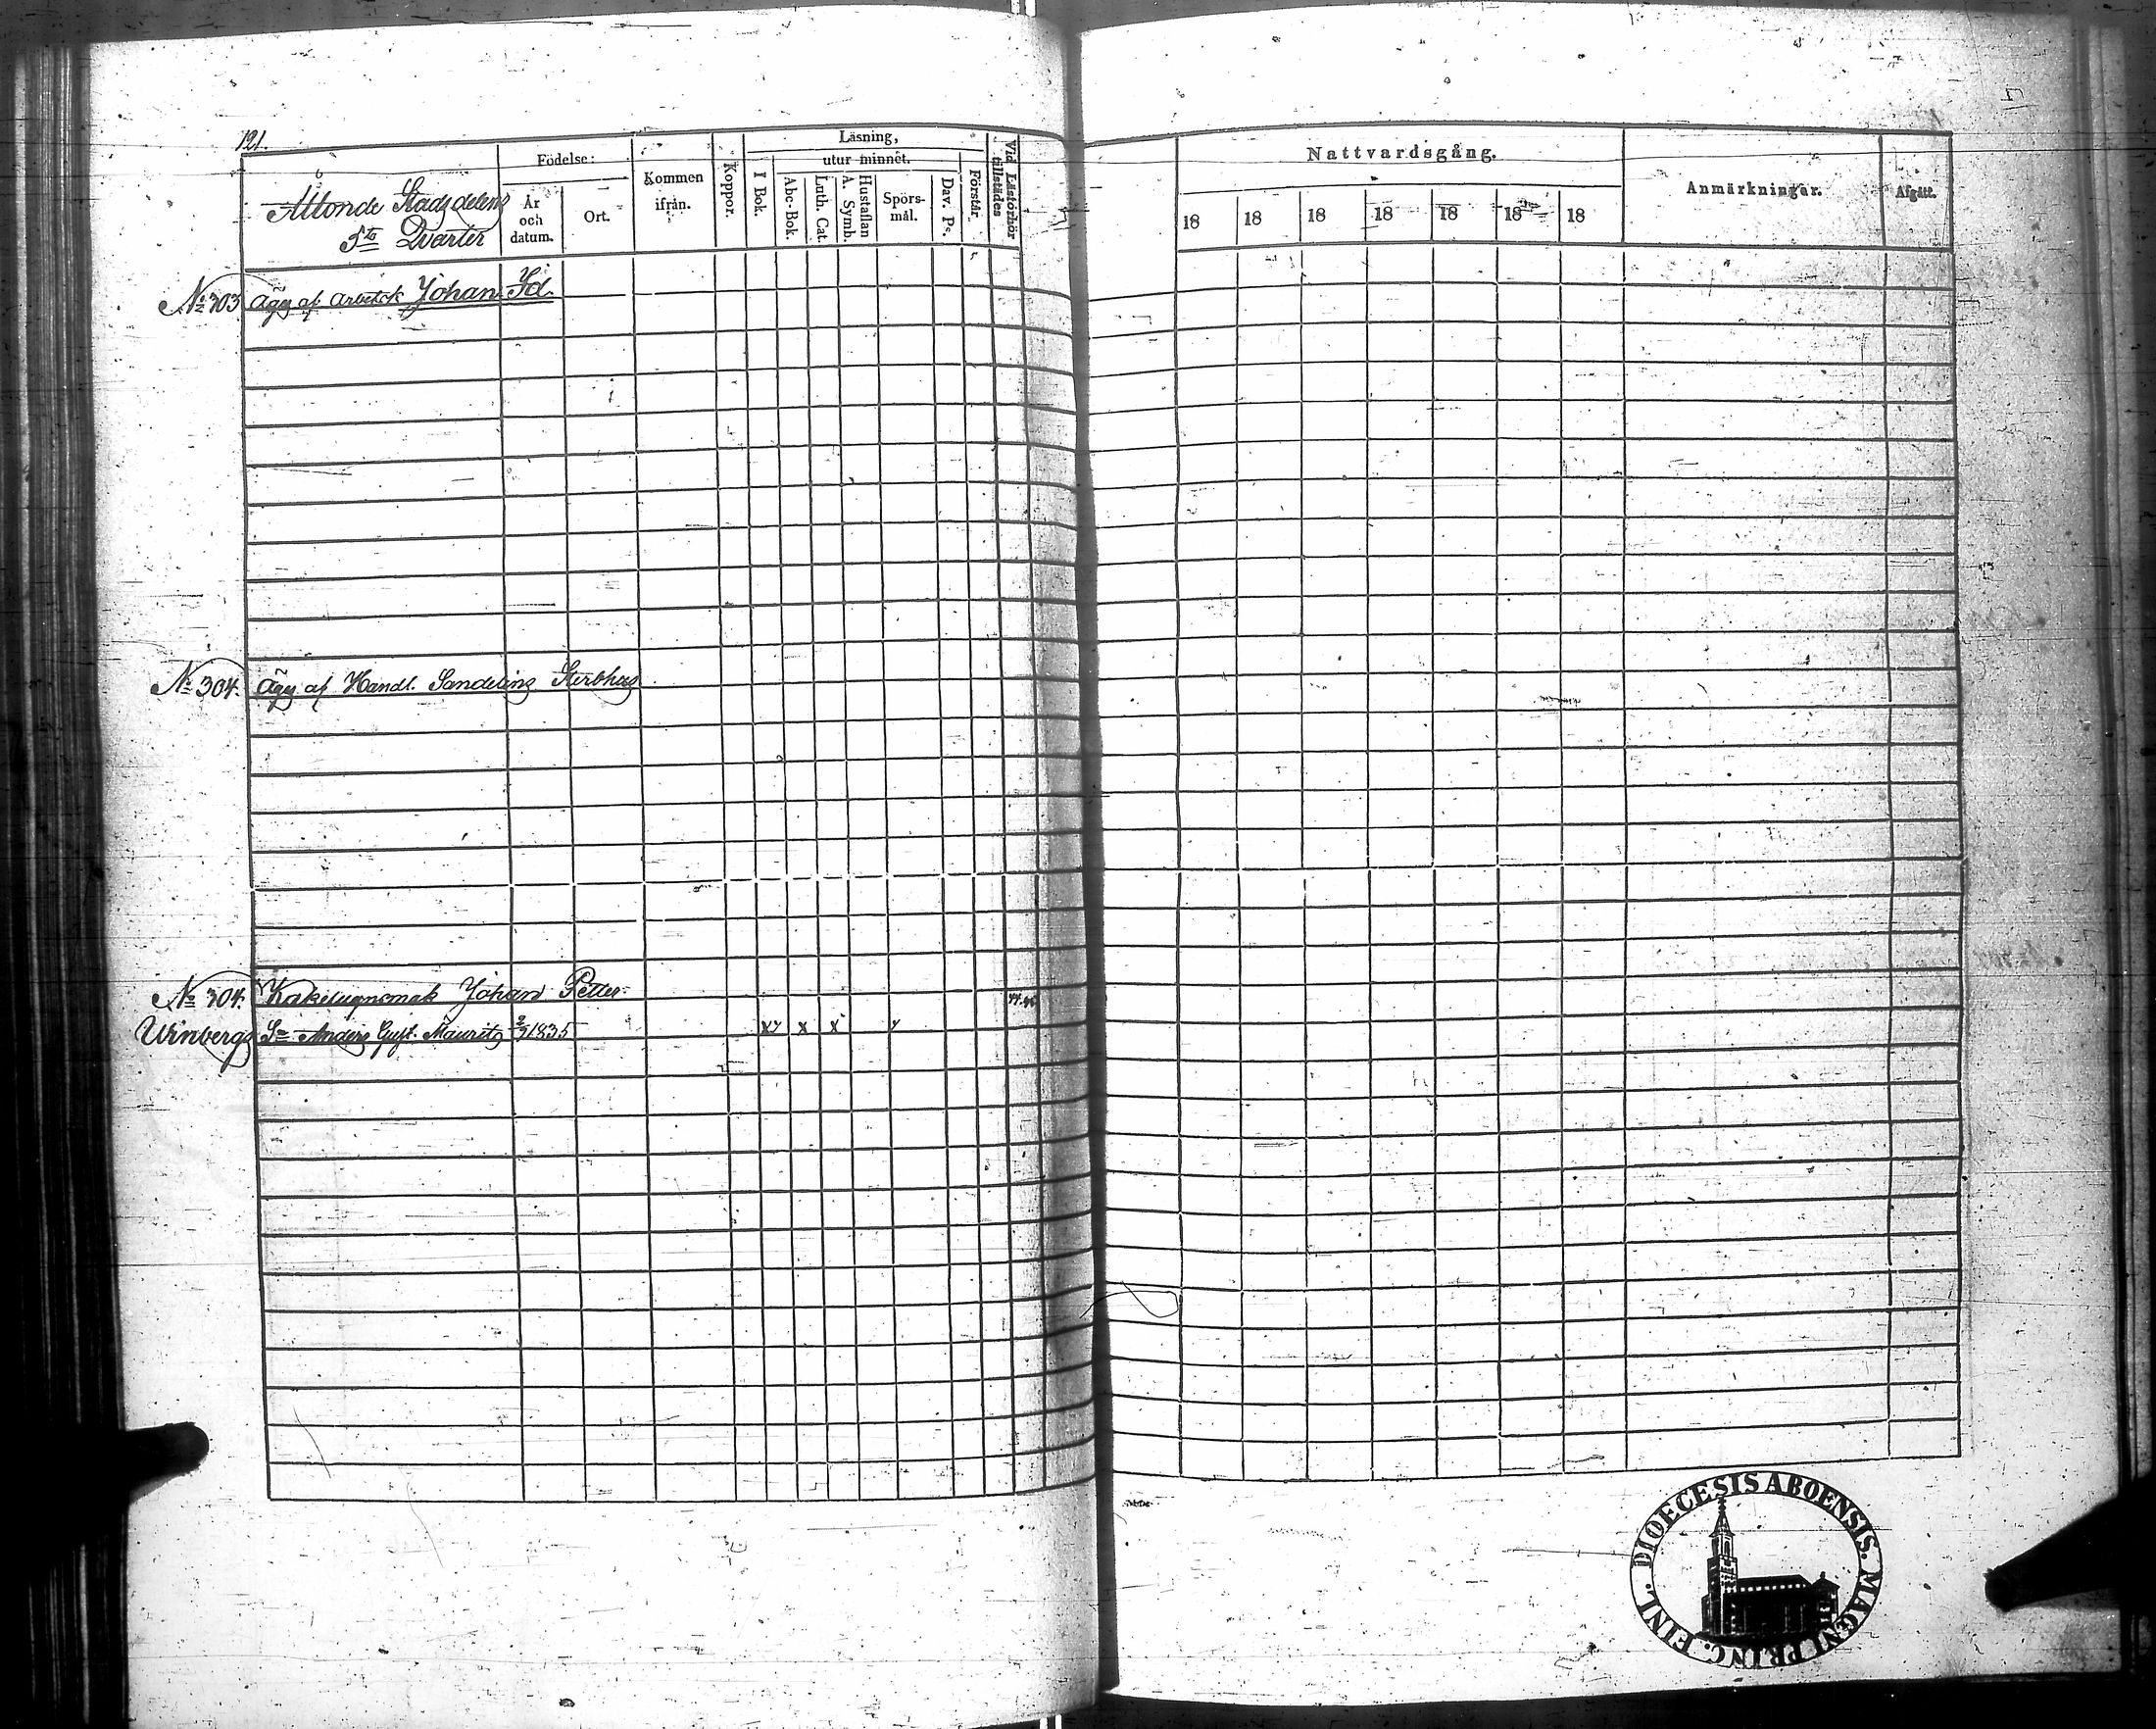 121.
Åttonde Stadsdelens
5te Qvarter
Födelse:
År och datum.
Ort.
Kommen ifrån.
Koppor.
Läsning,
I Bok.
utur minnet.
Abc-Bok.
Luth. Cat.
A. Symb.
Hustaflan
Spörs-mål.
Dav. Ps.
Förstår
Vid Läsförhör tillstädes
Nattvardsgång.
18 18 18 18 18 18 18
Anmärkningar.
Afgått.
No 303 äges af Johan
No 304. äges af Handl. Sandelins Sterbhus
No 304. Kakelugnsmak Johan Petter
Winbergs Sn Anders Gust. Maurits 2/9 1835 xy x x y
DIOECESIS ABOENSIS. MAGNI PRINC. FINL.